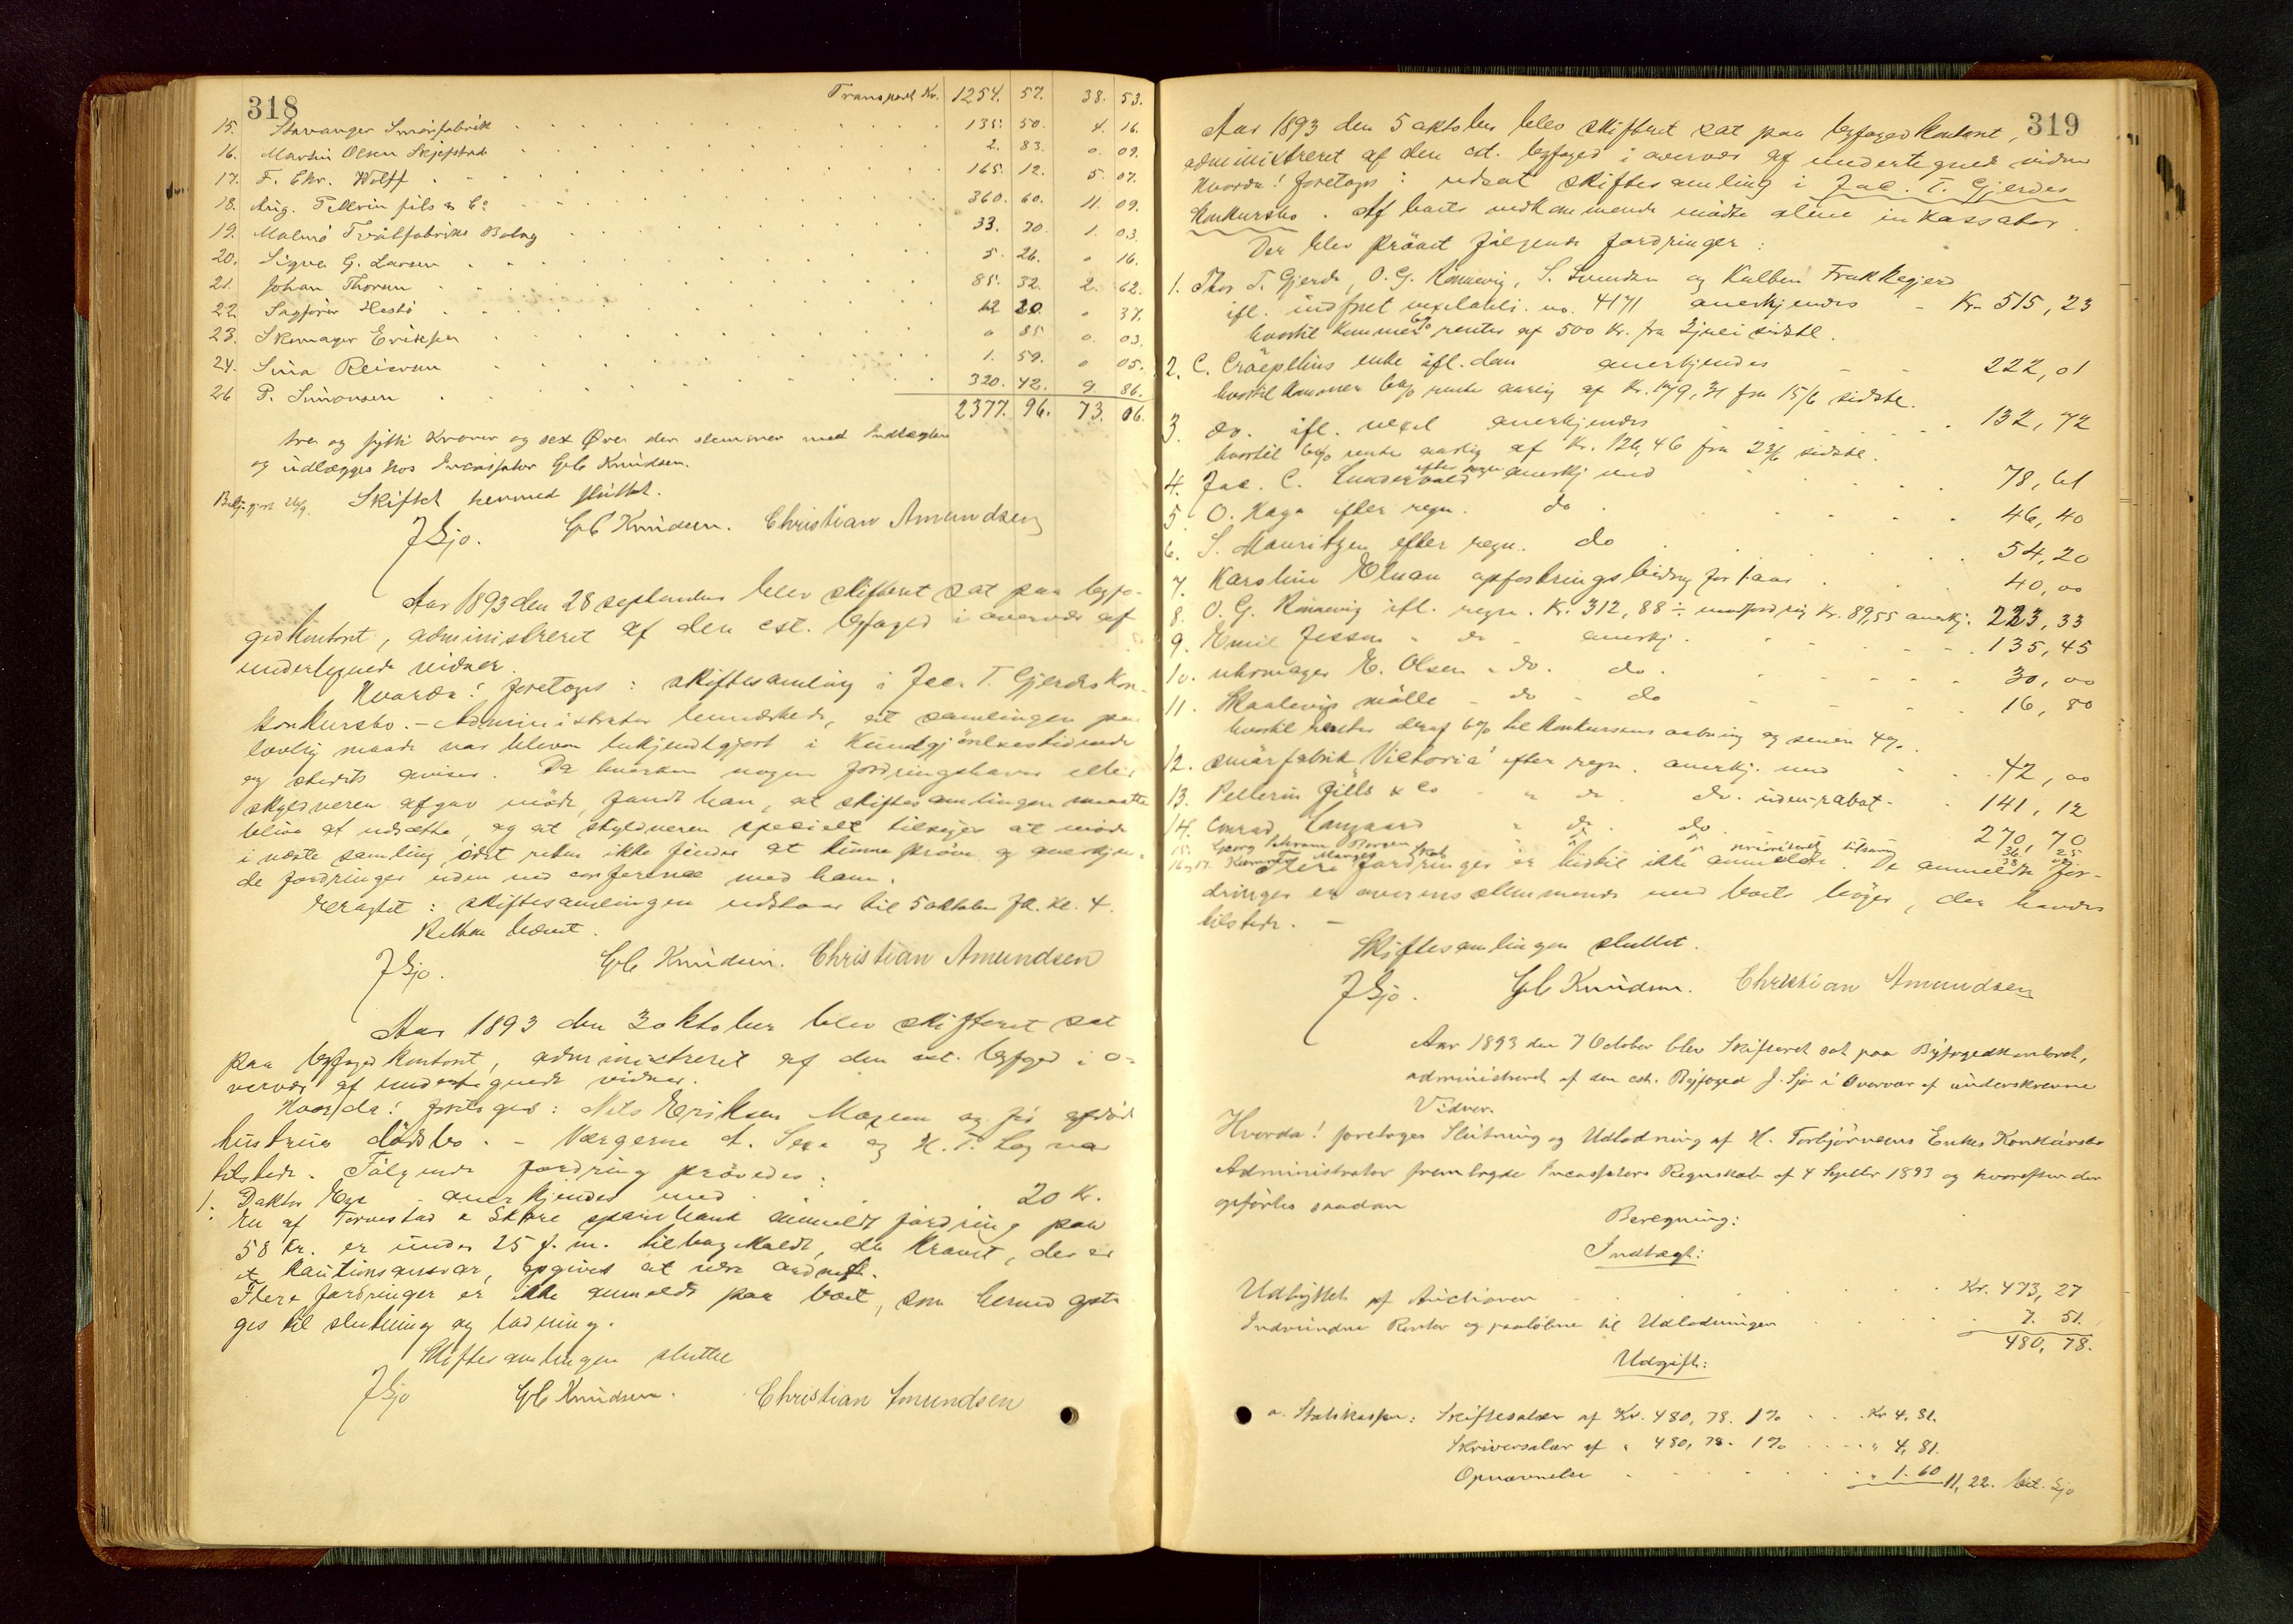 318
Transport Kr. 1254. 57. 38. 53.
15. Stavanger Smörfabrik 135. 50. 4. 16.
16. Martin Olsen Skjefstad 2. 83. 0. 09.
17. F. Chr. Wolff 165. 12. 5. 07.
18. Aug. Pellerin fils & Co 360. 60. 11. 09.
19. Malmö Tvålfabriks Bolag 33. 70. 1. 03.
20. Sigva G. Larsen 5. 26. 0 16.
21. Johan Thorsen 85. 32. 2. 62.
22. Sagförer Hestö 12 20. 0 37.
23. Skomager Eriksen 0 85 0. 03.
24. Sina Reiersen 1. 59. 0 05.
26 P. Simonsen 320. 42. 9. 86.
2377. 96. 73. 06.
tre og sytti Kroner og sex Øre der stemmer med Indtægten
og udlægges hos Incassator Chr Knudsen.
Skiftet hermed sluttet.
JSjo. Chr Knudsen. Christian Amundsen
Aar 1893 den 28 september blev skifteret sat paa byfo-
gedkontoret, administreret af den cst. byfoged i overvær af
undertegnede vidner.
Hvorda! foretoges: skiftesamling i Jac. T. Gjerdes kon-
konkursbo. - Administrator bemærkede, at samlingen paa
lovlig maade var bleven bekjendtgjort i Kundgjörelsestidende
og stedets aviser. Da hverken nogen fordringshaver eller
skyldneren afgav möde, fandt han, at skiftesamlingen maatte
blive at udsætte, og at skyldneren specielt tilsiges at möde
i næste samling, idet retten ikke finder at kunne pröve og anerkjen-
de fordringer uden ved conference med ham.
Eragtet: skiftesamlingen udstaar til 5 oktober fk. kl. 4.
Retten hævet.
JSjo. Chr Knudsen. Christian Amundsen
Aar 1893 den 3 oktober blev skifteret sat
paa byfogedkontoret, administreret af den cst. byfoged i o-
vervær af undertegnede vidner.
Hvorda! foretoges: Nils Eriksen Mazem ogför afdöde
hustrues dödsbo. - Værgerne A. Sexe og H. T. Log var
tilstede. Fölgende fordring prövedes:
1. Doktor Ege anerkjendes med 20 Kr.
En af Torvestad & Skåre sparebank anmeldt fordring paa
58 Kr. er under 25 f. m. tilbagekaldt, da kravet, der er
et kautionsansvar, opgives at være ordnet.
Flere fordringer er ikke anmeldt paa boet, som hermed opta-
ges til slutning og lodning.
Skiftesamlingen sluttet
JSjo Chr Knudsen. Christian Amundsen
319
Aar 1893 den 5 oktober blev skifteret sat paa byfogedkontoret,
administreret af den cst. byfoged i overvær af undertegnede vidner
Hvorda! foretoges: udsat skiftesamling i Jac. T. Gjerdes
konkursbo. Af boets vedkommende mödte alene inkassator.
Der blev prövet fölgende fordringer:
1. Thor T. Gjerde, O. G. Rönnevig, S. Svendsen og Kalben Frakkagjerd
ifl. indfriet vexelobli. no. 4171 anerkjendes Kr. 515,23
hvortil kommer 6% renter af 500 Kr. fra 2 juli sidstl.
2. C. Cräepelius enke ifl. dom anerkjendes 222,01
hvortil kommer 6% rente aarlig af Kr. 179,31 fra 15/6 sidstl.
3. do. ifl. vexel anerkjendes 132,72
hvortil 6% rente aarlig af Kr. 126,46 fra 23/6 sidstl.
4. Jac. C. Lundervold efter regn anerkj med 78,61
5 O. Haga efter regn. do 46,40
6. S. Mauritzen efter regn. do 54,20
7. Karoline Elnan opfostringsbidrag for 1 aar 40,00
8. O. G. Rönnevig ifl. regn. Kr. 312,88 ÷ modfordring Kr. 89,55 anerkj. 223,33
9. Emil Jessen " do - anerkj. 135,45
10. uhrmager E. Olsen " do. do. 30,00
11. Skaalevigs mölle - do - do 16,80
hvortil renter deraf 6% til konkursens aabning og senere 4%.
12. smörfabrik Victoria efter regn. anerkj. med 42,00
13. Pellerin fils & Co " do do. uden rabat. 141,12
14. Conrad Langaard " do. do. 270,70
15. Georg Schram Bergen " do " 36. 25
Flere fordringer er hidtil ikke anmeldt. De anmeldte for-
dringer er overensstemmende med boets böger, der havdes
tilstede. -
Skiftesamlingen sluttet.
JSjo. Chr Knudsen. Christian Amundsen
Aar 1893 den 7 October blev Skifteret sat paa Byfogedkontoret,
administreret af den cst. Byfoged J. Sjo i Overvær af underskrevne
Vidner.
Hvorda! foretoges Slutning og Udlodning af H. Torbjörnsens Enkes Konkursbo
Administrator fremlagde Incassators Regnskab af 4 Septbr 1893 og hvorefter der
opförtes saadan
Beregning:
Indtægt:
Udbyttet af Auctionen Kr. 473,27
Indvundne Renter og paalöbne til Udlodningen 7. 51.
480,78.
Udgift:
a. Statskassen: Skiftesalær af Kr. 480,78. 1% Kr 4,81.
Skriversalær af " 480,78. 1% " 4,81.
Opnævnelse " 1.60 11,22. bet. Sjo